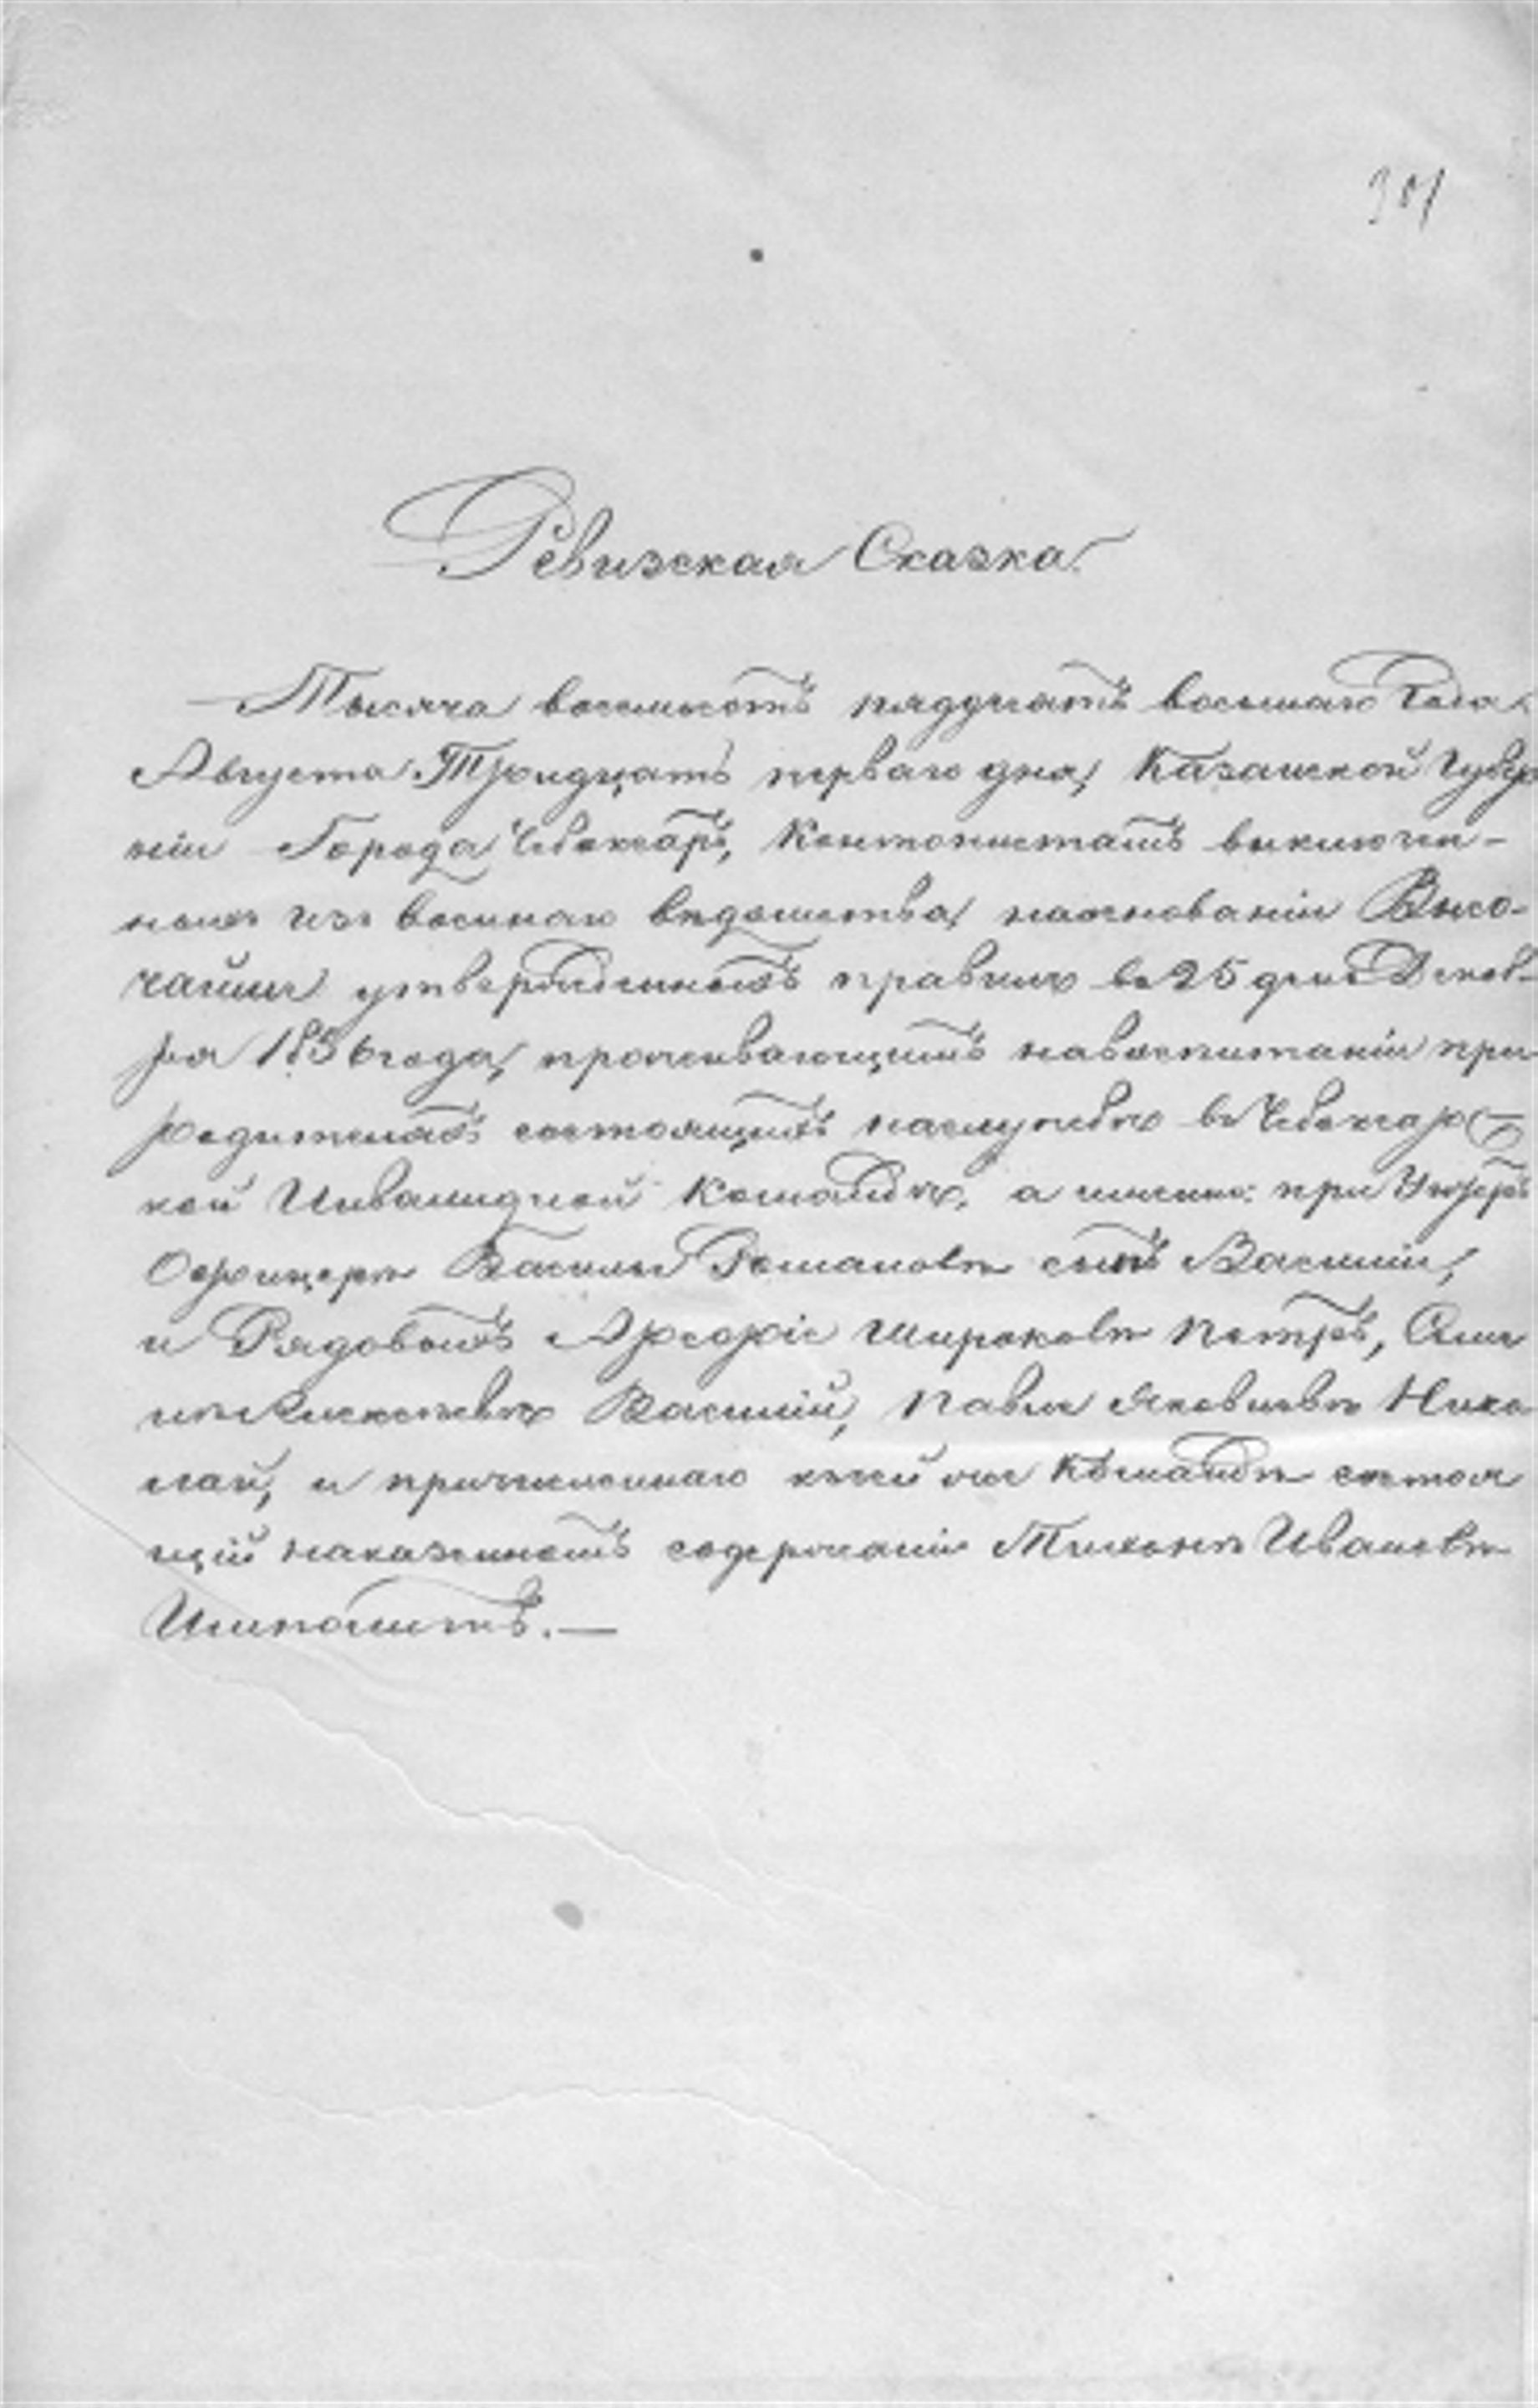 301
Ревизская Сказка.
Тысяча восемьсотъ пяддесятъ восьмаго Года
Августа Тридцать перваго дня, Казанской Губер
ніи Города Чебоксаръ, Кантонистамъ выключен-
нымъ изъ военнаго вѣдомства, наоснованіи Высо-
чайше утвержденныхъ правилъ въ 25 день Декаб-
ря 1856 года, проживающимъ навоспитаніи при
родителяхъ состоящихъ наслужбѣ въ Чебоксарс
кой Инвалидной Командѣ, а имянно: при Унтеръ
Офицерѣ Василье Романовѣ сынъ Василій,
и Рядовыхъ Ареѳіе Широковѣ Петръ,
Алексеевѣ Василій, Павле Яковлевѣ Нико
лай, и причисленнаго къ сей же Командѣ состоя
щій наказенномъ содержаніи Тихонъ Ивановъ